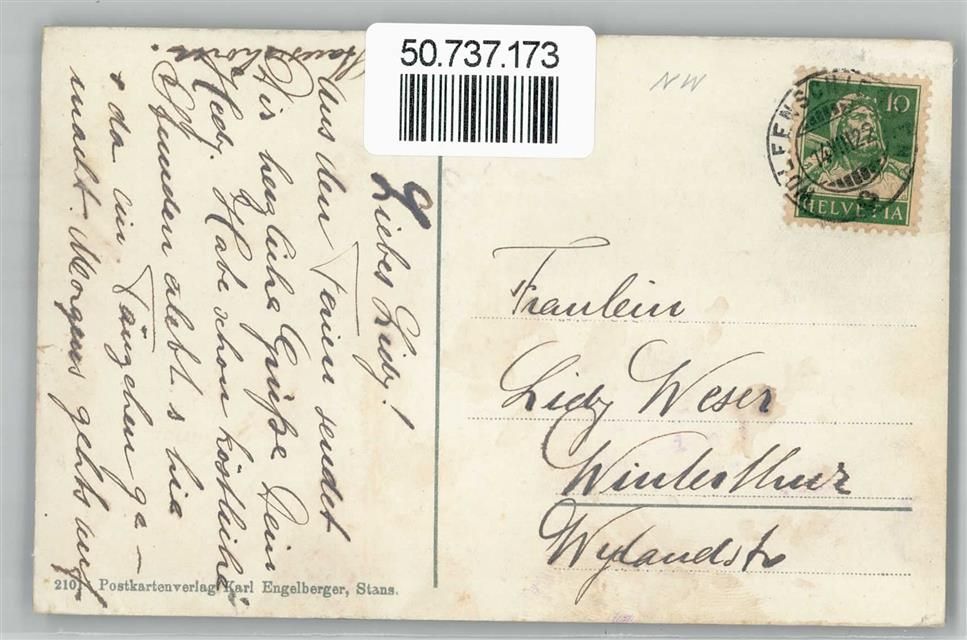 50.737.173
NW
10
HELVETIA
WOLFENSCHI
Liebes Lidy!
Aus den Ferien sendet
Dir herzliche Grüsse Dein
Hedy. Habe schon köstliche
Stunden erlebt hie
& da ein Tänzchen ge-
macht. Morgens gehts auf
Fräulein
Lidy Weser
Winterthur
Wylandstr
210 Postkartenverlag Karl Engelberger, Stans.